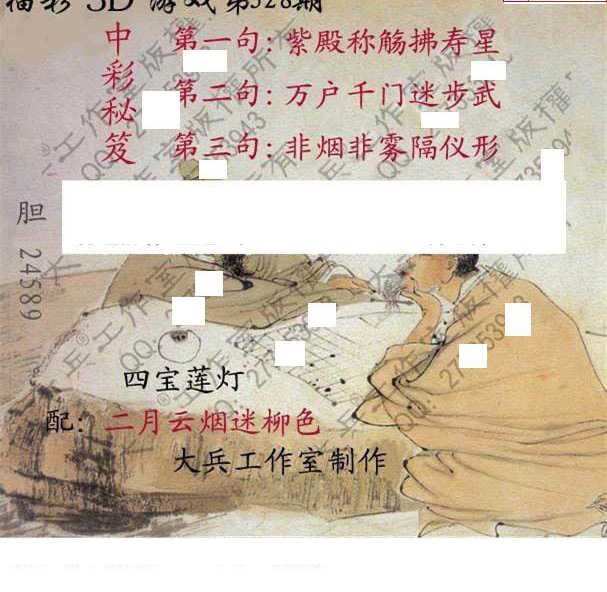 福彩 3D 游戏 第328期
中彩秘笈
第一句: 紫殿称觞拂寿星
第二句: 万户千门迷步武
第三句: 非烟非雾隔仪形
胆 24589
四宝莲灯
配: 二月云烟迷柳色
大兵工作室制作